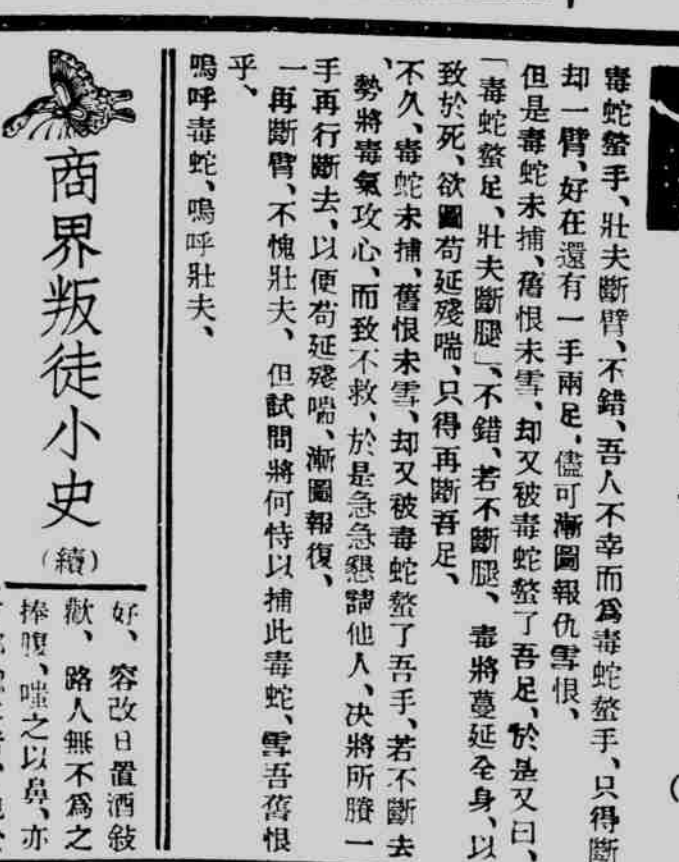 毒蛇螫手、壯夫斷臂、不錯、吾人不幸而爲毒蛇螫手、只得斷
却一臂、好在還有一手兩足、儘可漸圖報仇雪恨、
但是毒蛇未捕、舊恨未雪、却又被毒蛇螫了吾足、於是又曰、
「毒蛇螫足、壯夫斷腿」、不錯、若不斷腿、毒將蔓延全身、以
致於死、欲圖苟延殘喘、只得再斷吾足、
不久、毒蛇未捕、舊恨未雪、却又被毒蛇螫了吾手、若不斷去
、勢將毒氣攻心、而致不救、於是急急懇請他人、决將所賸一
手再行斷去、以便苟延殘喘、漸圖報復、
一再斷臂、不愧壯夫、但試問將何恃以捕此毒蛇、雪吾舊恨
乎、
嗚呼毒蛇、嗚呼壯夫、
商界叛徒小史
(續)
好、容改日置酒敍
歡、路人無不爲之
捧腹、嗤之以鼻、亦